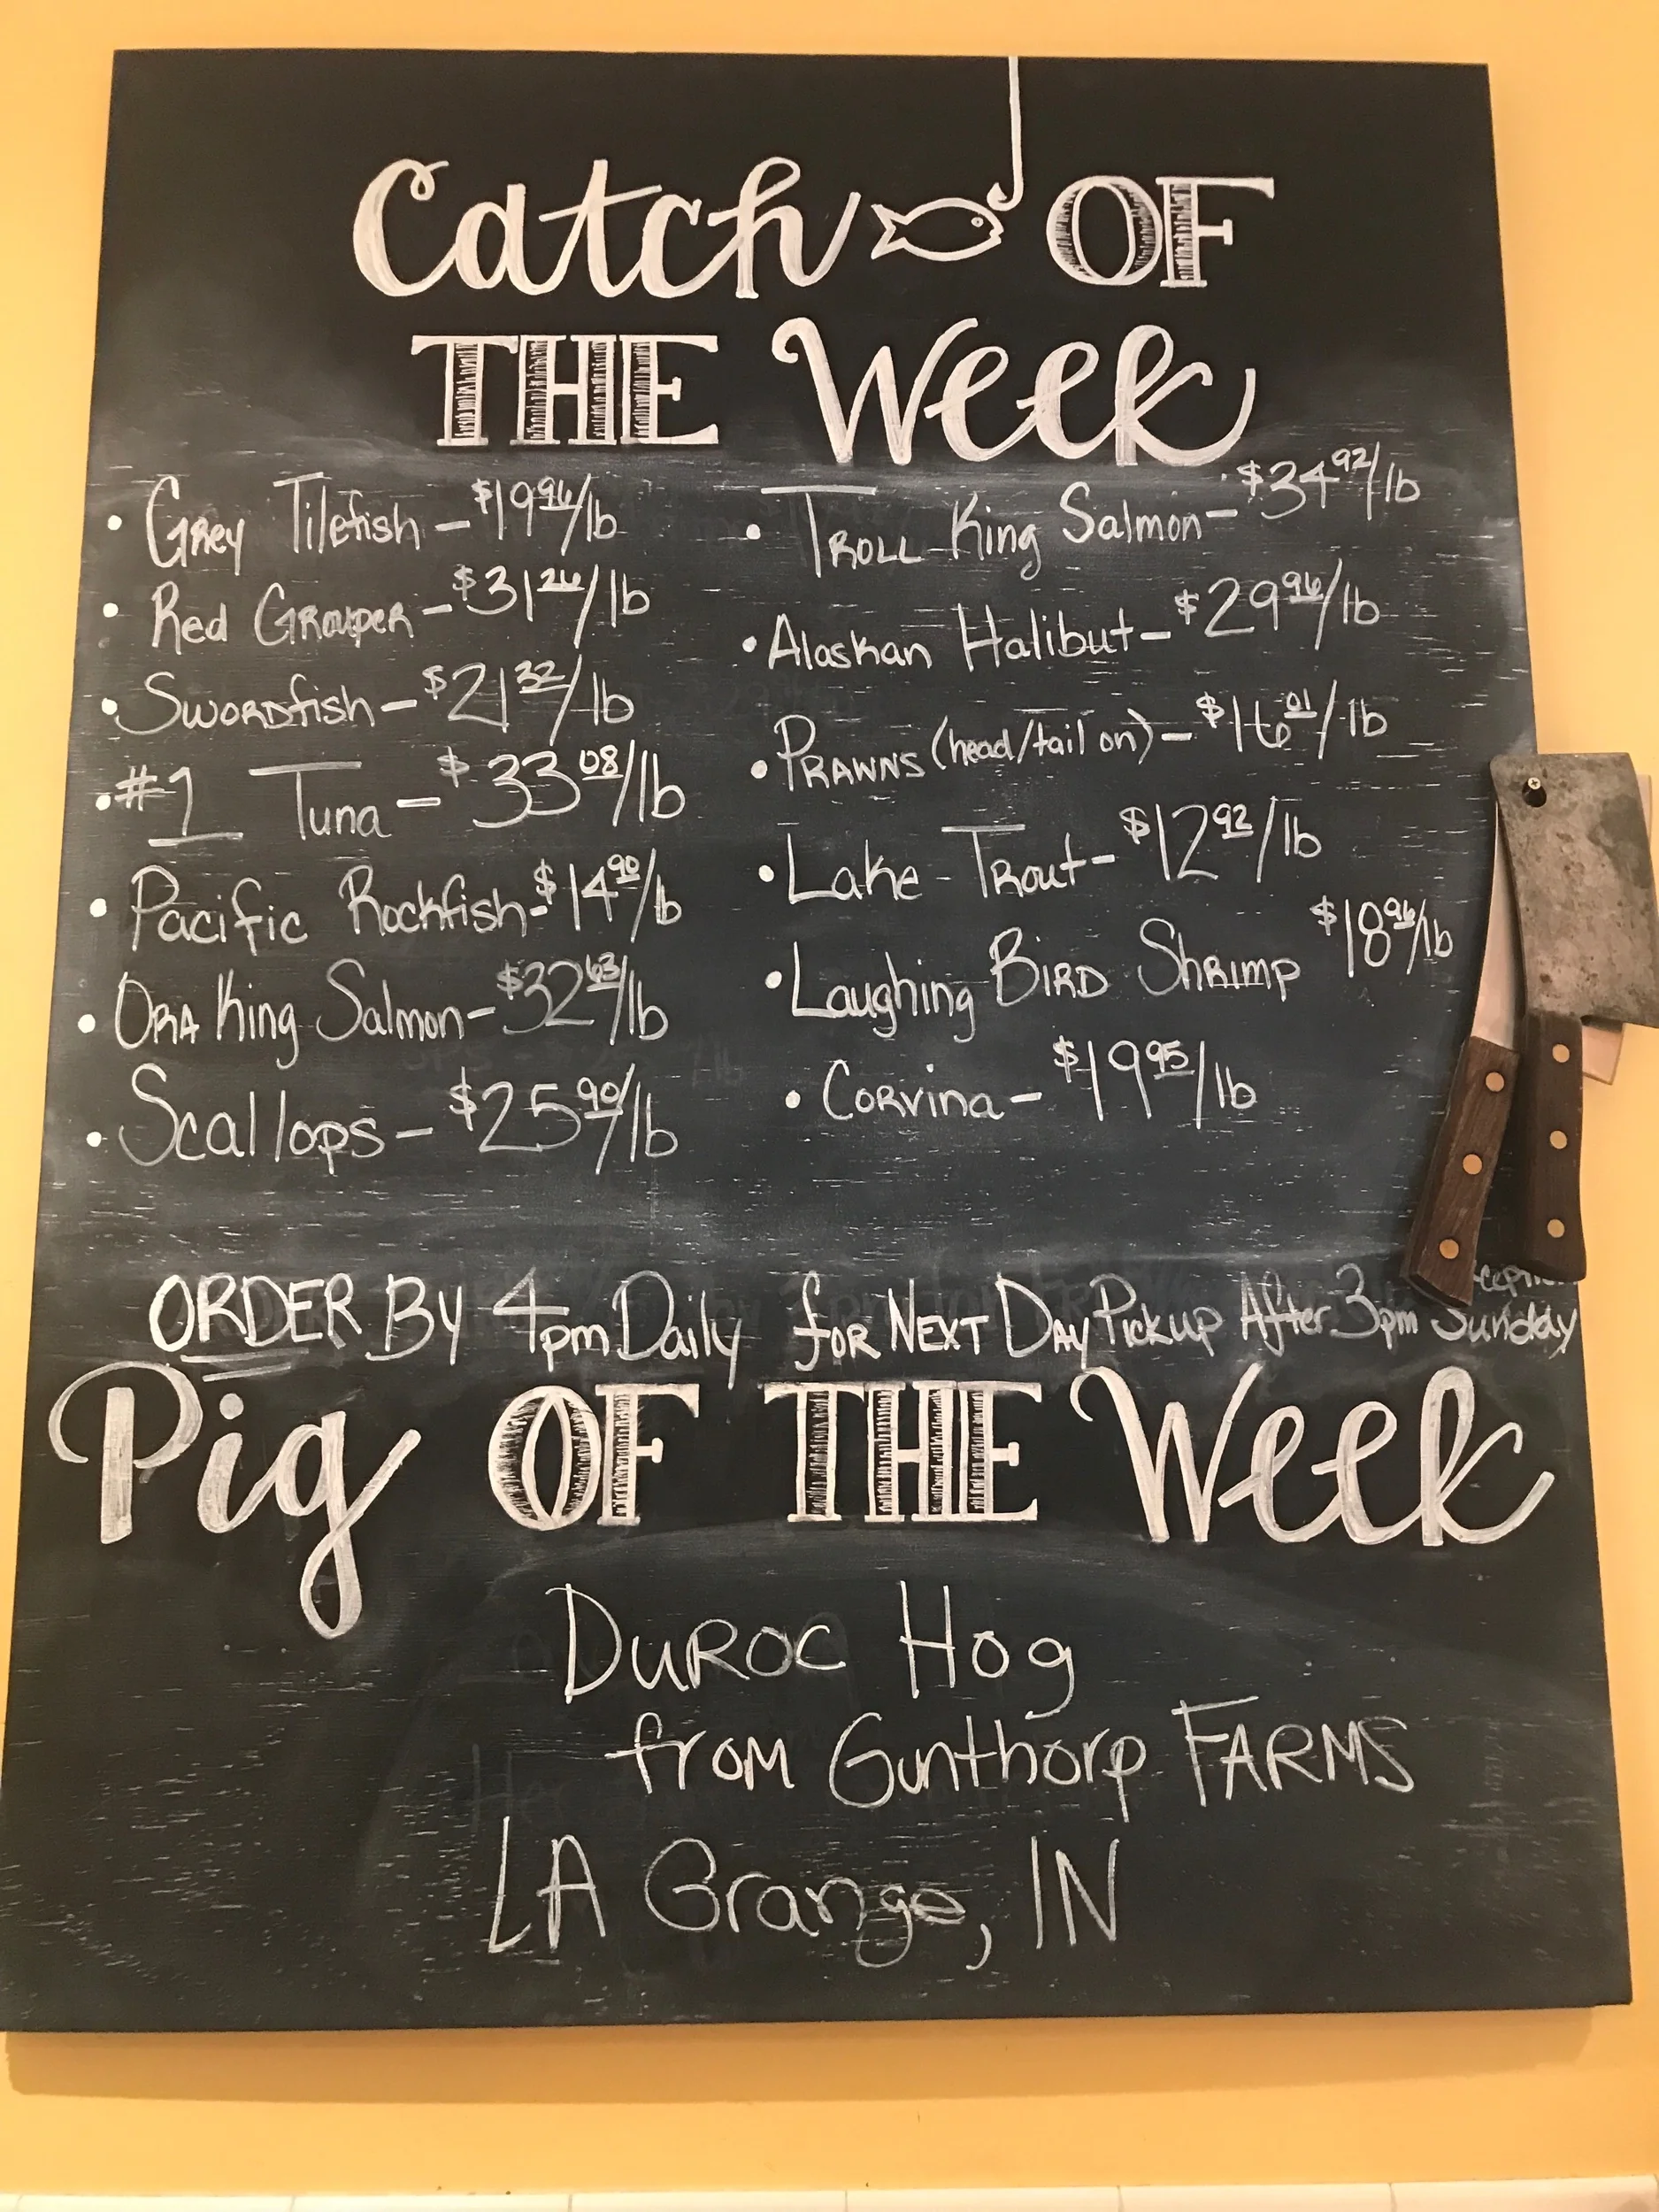 Catch OF
THE Week
• Grey Tilefish – $19.96/lb
• Red Grouper – $31.26/lb
• Swordfish – $21.32/lb
• #1 Tuna – $33.08/lb
• Pacific Rockfish – $14.90/lb
• Ora King Salmon – $32.63/lb
• Scallops – $25.90/lb
• Troll King Salmon – $34.92/lb
• Alaskan Halibut – $29.96/lb
• Prawns (head/tail on) – $16.01/lb
• Lake Trout – $12.92/lb
• Laughing Bird Shrimp $18.96/lb
• Corvina – $19.95/lb
ORDER By 4pm Daily for Next Day Pickup After 3pm Sunday
Pig OF THE Week
Duroc Hog
from Gunthorp FARMS
LA Grange, IN